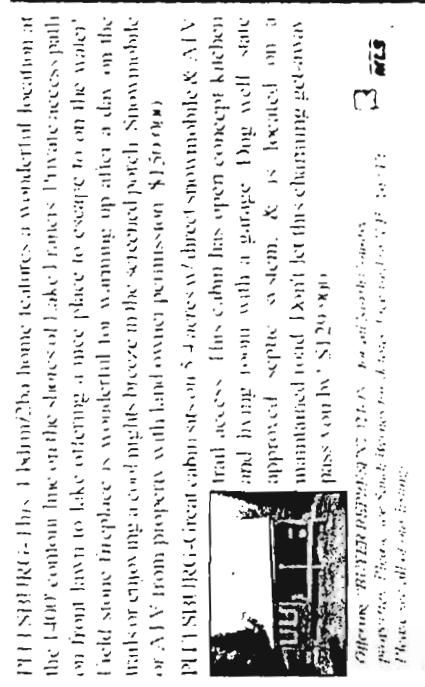 PITTSBURG-This 3 bdrm/2ba home features a wonderful location at
the 1400' contour line on the shores of Lake Francis. Private access path
on front lawn to lake offering a nice place to escape to on the water!
Field stone fireplace is wonderful for warming up after a day on the
trails or enjoying a cool nights breeze in the screened porch. Snowmobile
or ATV from property with land owner permission. $150,000
PITTSBURG-Great cabin sits on 5.4 acres w/ direct snowmobile & ATV
trail access. This cabin has open concept kitchen
and living room with a garage. Dug well, state
approved septic system, & is located on a
maintained road. Don't let this charming get-away
pass you by! $129,000
Offering "BUYER REPRESENTATION"
MLS